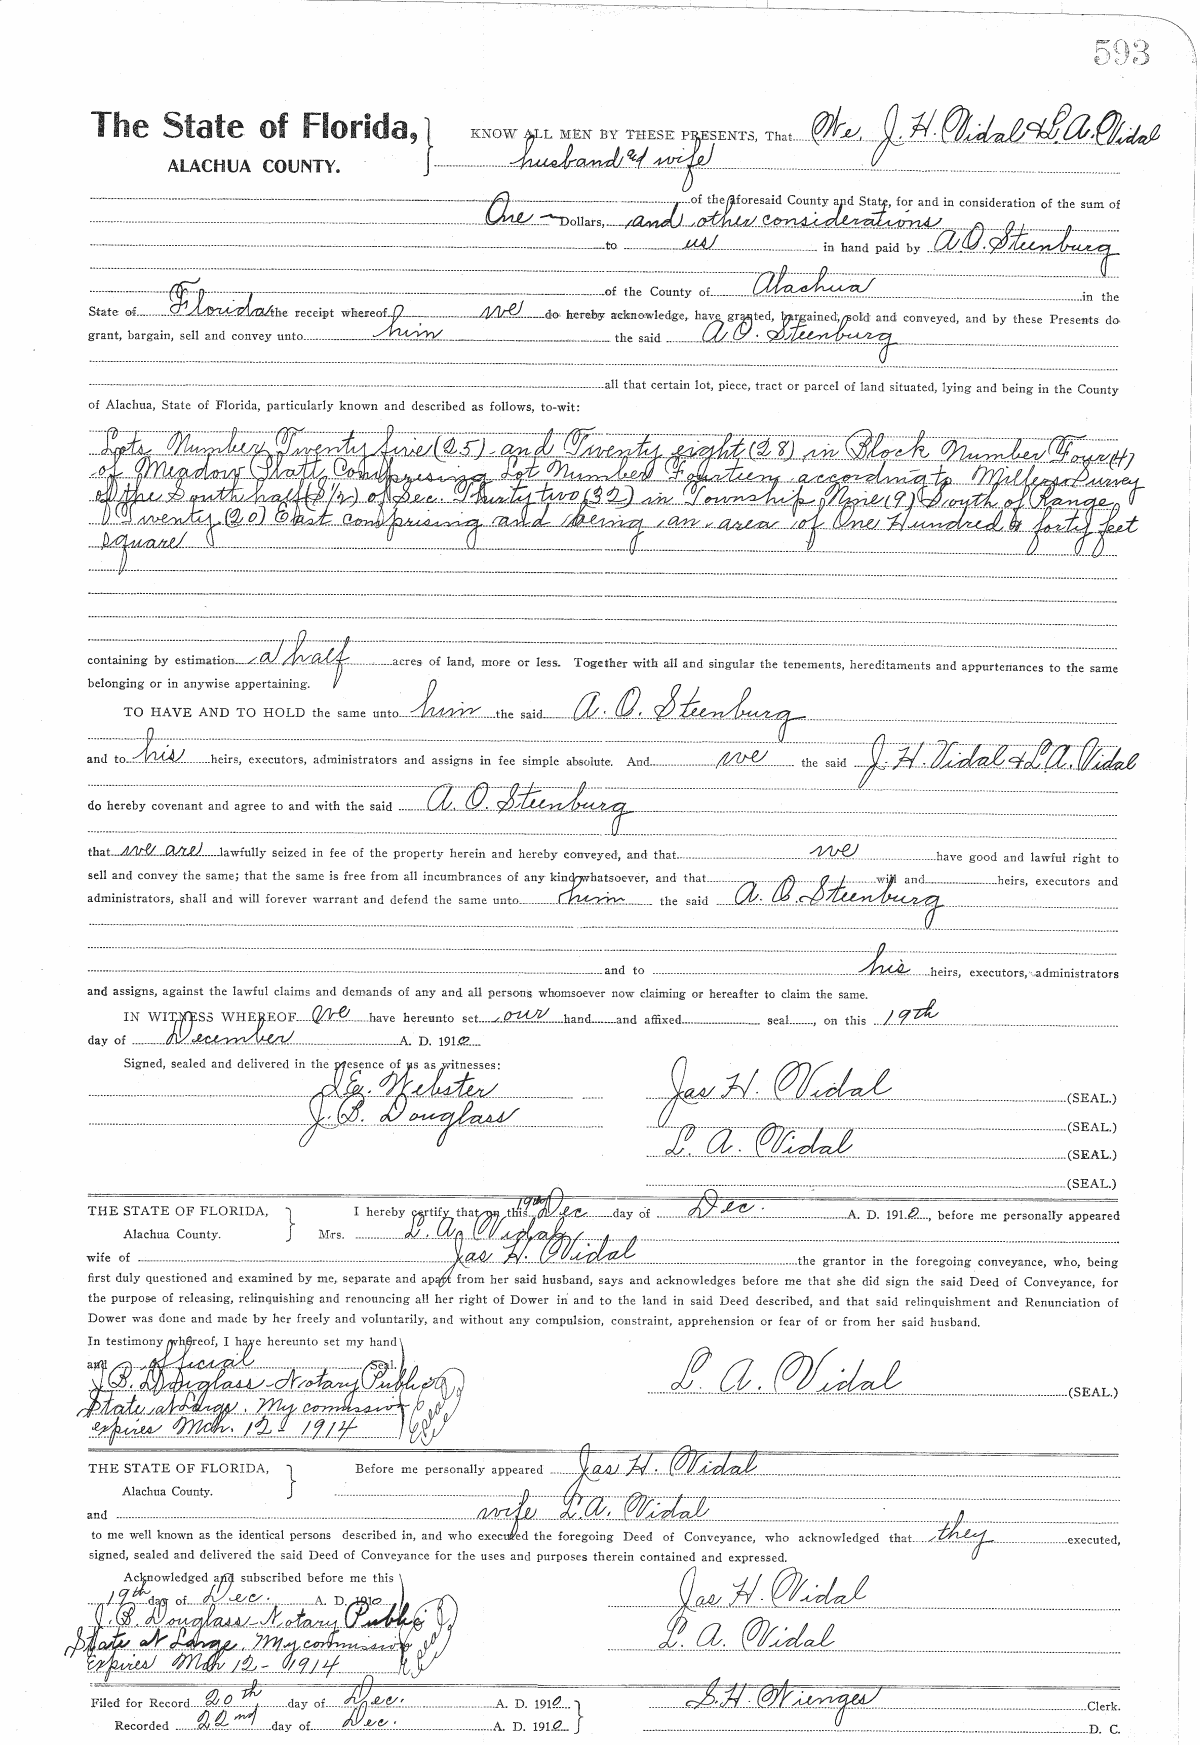 593
The State of Florida, KNOW ALL MEN BY THESE PRESENTS, That We, J. H. Vidal & L. A. Vidal
ALACHUA COUNTY. husband and wife
of the aforesaid County and State, for and in consideration of the sum of
One Dollars, and other considerations
to us in hand paid by A. O. Steenburg
of the County of Alachua in the
State of Florida the receipt whereof we do hereby acknowledge, have granted, bargained, sold and conveyed, and by these Presents do
grant, bargain, sell and convey unto him the said A O. Steenburg
all that certain lot, piece, tract or parcel of land situated, lying and being in the County
of Alachua, State of Florida, particularly known and described as follows, to-wit:
Lots Number Twenty five (25) and Twenty eight (28) in Block Number Four (4)
of Meadow Platt Comprising Lot Number Fourteen according to Millers Survey
of the South half (S½) of Sec. Thirty two (32) in Township Nine (9) South of Range
Twenty (20) East comprising and being an area of One Hundred & forty feet
square
containing by estimation a half acres of land, more or less. Together with all and singular the tenements, hereditaments and appurtenances to the same
belonging or in anywise appertaining.
TO HAVE AND TO HOLD the same unto him the said A. O. Steenburg
and to his heirs, executors, administrators and assigns in fee simple absolute. And we the said J. H. Vidal & L. A. Vidal
do hereby covenant and agree to and with the said A. O. Steenburg
that we are lawfully seized in fee of the property herein and hereby conveyed, and that we have good and lawful right to
sell and convey the same; that the same is free from all incumbrances of any kind whatsoever, and that will and heirs, executors and
administrators, shall and will forever warrant and defend the same unto him the said A. O. Steenburg
and to his heirs, executors, administrators
and assigns, against the lawful claims and demands of any and all persons whomsoever now claiming or hereafter to claim the same.
IN WITNESS WHEREOF we have hereunto set our hand and affixed seal, on this 19th
day of December A. D. 1910
Signed, sealed and delivered in the presence of us as witnesses:
Webster Jas H. Vidal (SEAL.)
J. B. Douglass (SEAL.)
L. A. Vidal (SEAL.)
(SEAL.)
THE STATE OF FLORIDA, I hereby certify that on this 19th Dec day of Dec. A. D. 1910, before me personally appeared
Alachua County. Mrs. L. A. Vidal
wife of Jas H. Vidal the grantor in the foregoing conveyance, who, being
first duly questioned and examined by me, separate and apart from her said husband, says and acknowledges before me that she did sign the said Deed of Conveyance, for
the purpose of releasing, relinquishing and renouncing all her right of Dower in and to the land in said Deed described, and that said relinquishment and Renunciation of
Dower was done and made by her freely and voluntarily, and without any compulsion, constraint, apprehension or fear of or from her said husband.
In testimony whereof, I have hereunto set my hand
and official Seal.
J. B. Douglass - Notary Public L. A. Vidal (SEAL.)
State at Large. My commission
expires Mch. 12 - 1914
THE STATE OF FLORIDA, Before me personally appeared Jas H. Vidal
Alachua County.
and wife L. A. Vidal
to me well known as the identical persons described in, and who executed the foregoing Deed of Conveyance, who acknowledged that they executed,
signed, sealed and delivered the said Deed of Conveyance for the uses and purposes therein contained and expressed.
Acknowledged and subscribed before me this
19th day of Dec. A. D. 1910 Jas H. Vidal
J. B. Douglass - Notary Public
State at Large. My commission L. A. Vidal
Expires Mch 12 - 1914
Filed for Record 20th day of Dec. A. D. 1910 S. H. Wienges Clerk.
Recorded 22nd day of Dec. A. D. 1910 D. C.